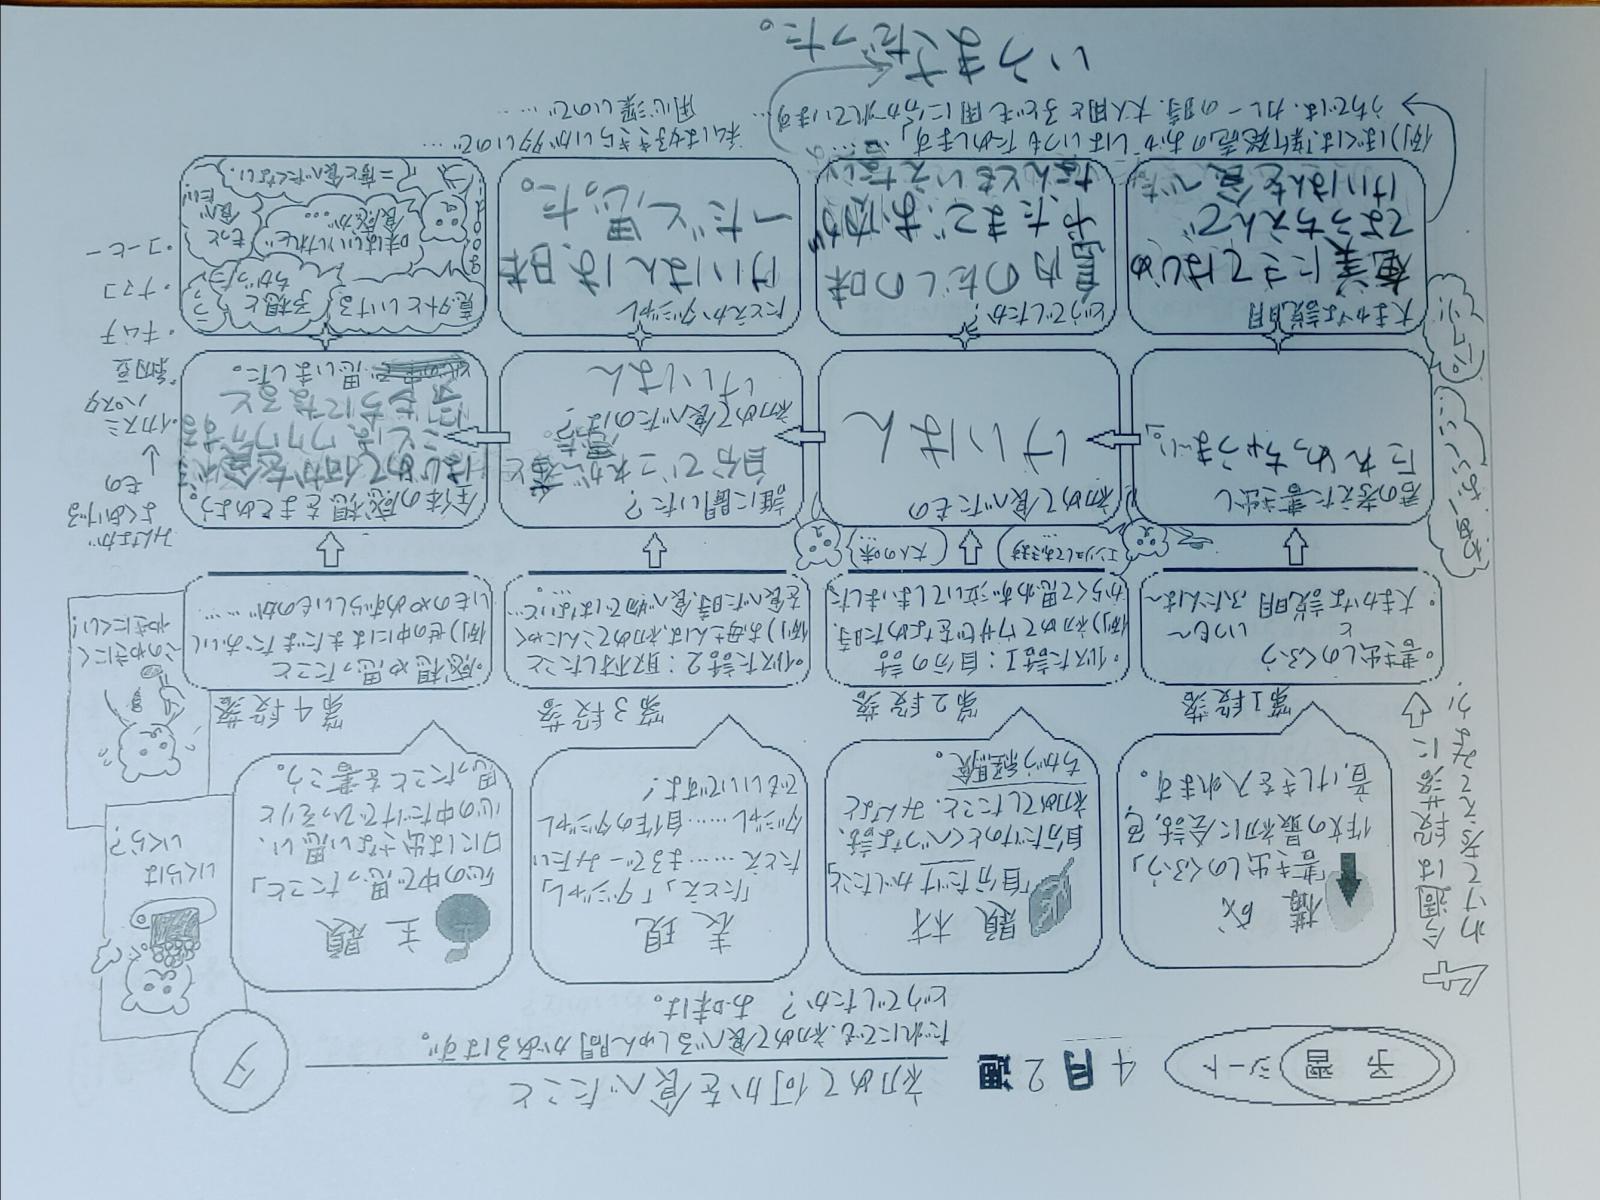 予習シート
4月2週
初めて何かを食べたこと
タ
だれにでも、初めて食べるしゅん間があるはず。
どうでしたか? お味は。
構成
「書き出しのくふう」
作文の最初に会話、色、
音、けしきを入れます。
題材
「自分だけがしたこと」
自分だけのとくべつな話、
初めてしたこと、みんなと
ちがう経験。
表現
「たとえ」「ダジャレ」
たとえ……まるで〜みたい
ダジャレ……自作のダジャレ
でもいいですよ!
主題
「心の中で思ったこと」
口には出さない思い、
心の中だけでひっそりと
思ったことを書こう。
いくらは
いくら?
このやきにく
やきにくい!
今週は段落に
わけて考えてみよう
第1段落
・書き出しのくふう
と
・大まかな説明
いつも〜
ふだんは〜
第2段落
・似た話1:自分の話
(例)初めてワサビをなめた時、
からくて思わず泣いてしまいました
第3段落
・似た話2:取材したこと
(例)お母さんは、初めてこんにゃく
を食べた時、食べ物ではないと…
第4段落
・感想や思ったこと
(例)世の中にはまだまだおいし
いものやめずらしいものが……
君の考えた書き出し
初めて食べたもの
けいはん
大人の味…
誰に聞いた?
自分でこれが
初めて食べたのは?
けいはん
全体の感想をまとめよう。
はじめて何かを食べる
ことは、ワクワクする
気もちになると
思いました。
みんなが
よくあげる
もの
↓
・イカスミ
パスタ
・納豆
・キムチ
・ナマコ
・コーヒー
大まかな説明
奄美にきてはじめ
てようちえんで
けいはんを食べた
どうでしたか?
鳥肉のだしの味
なんともいえない
うまさだった。
たとえかダジャレ
けいはんは、日本
一だと思った。
意外といける
予想と
ちがった
味はいいけれど
食感が…
もっと
食べ
たい!
二度と食べたくない。
(例)ぼくは、新発売のおかしはいつもためします。
うちでは、カレーの時、大人用と子ども用に分かれています…
私は好ききらいが多いので…
用心深いので……